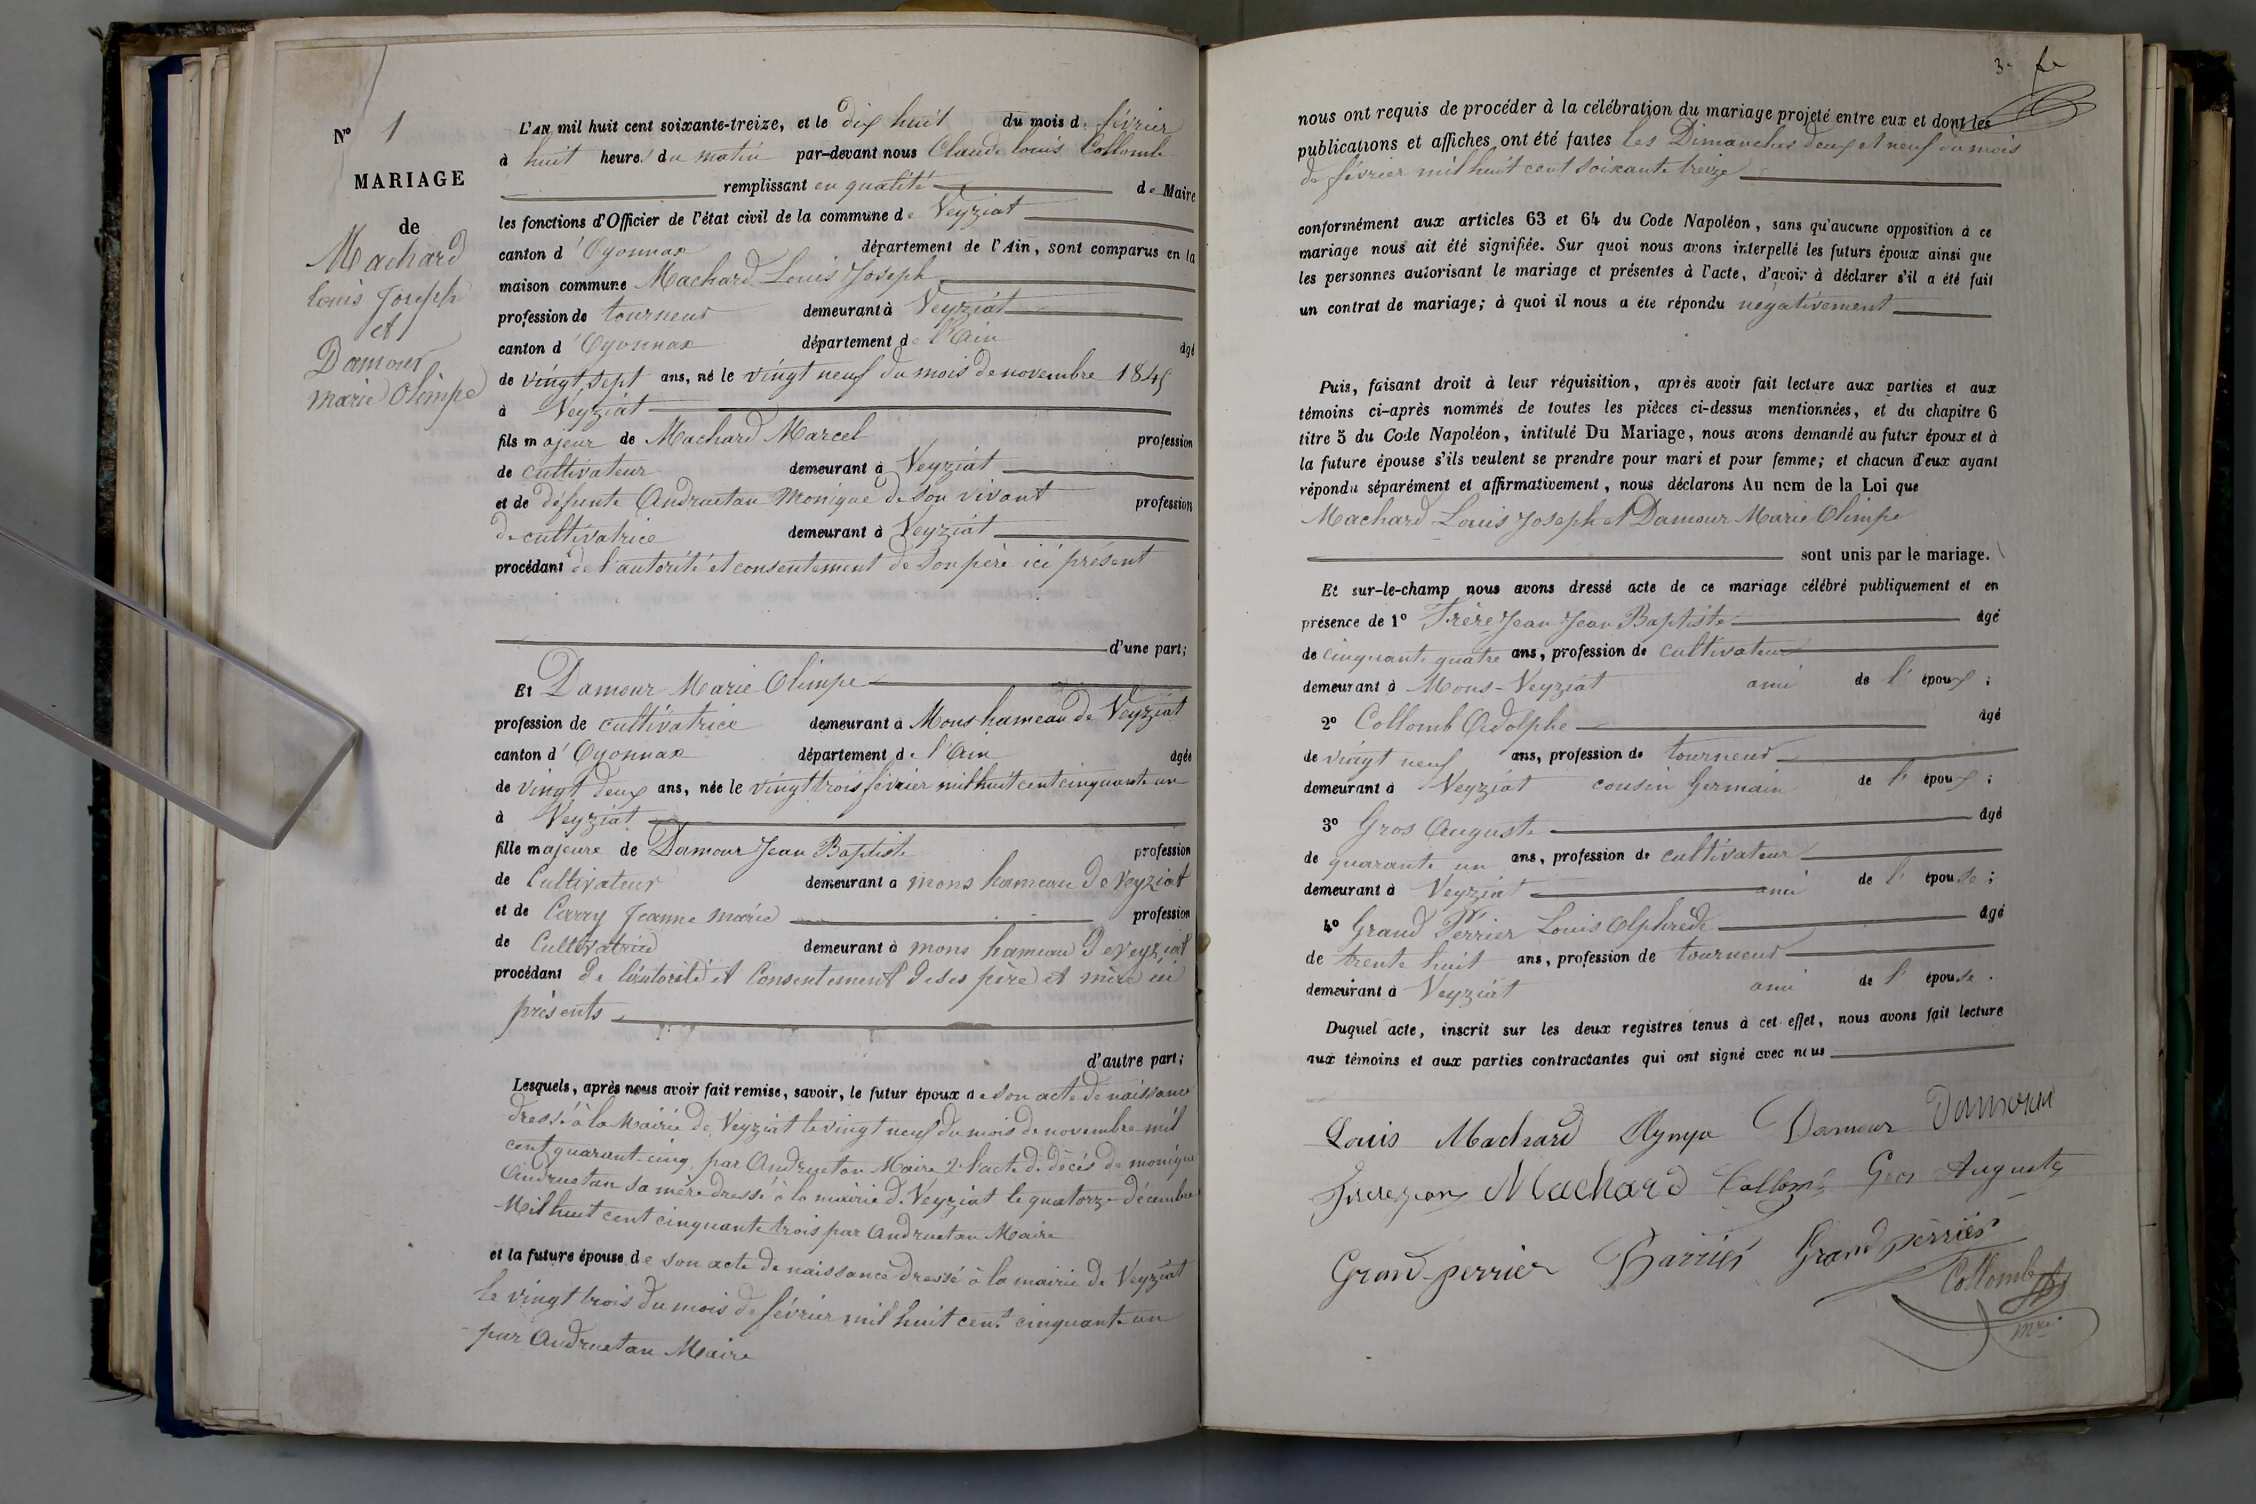 N° 1
MARIAGE
de
Machard
louis Joseph
et
Damour
marie Olimpe
L'AN mil huit cent soixante-treize, et le dix huit du mois de février
à huit heures du matin par-devant nous Claude louis Collomb
remplissant en qualité de Maire
les fonctions d'Officier de l'état civil de la commune de Veyziat
canton d'Oyonnax département de l'Ain, sont comparus en la
maison commune Machard Louis Joseph
profession de tourneur demeurant à Veyziat
canton d'Oyonnax département de l'Ain âgé
de vingt sept ans, né le vingt neuf du mois de novembre 1845
à Veyziat
fils majeur de Machard Marcel profession
de cultivateur demeurant à Veyziat
et de défunte Andruetan Monique de son vivant profession
de cultivatrice demeurant à Veyziat
procédant de l'autorité et consentement de son père ici présent
d'une part;
Et Damour Marie Olimpe
profession de cultivatrice demeurant à Mons hameau de Veyziat
canton d'Oyonnax département de l'Ain âgée
de vingt deux ans, née le vingt trois février mil huit cent cinquante un
à Veyziat
fille majeure de Damour Jean Baptiste profession
de Cultivateur demeurant à mons hameau de Veyziat
et de Carry Jeanne marie profession
de Cultivatrice demeurant à mons hameau de Veyziat
procédant de l'autorité et Consentement de ses père et mère ici
présents
d'autre part;
Lesquels, après nous avoir fait remise, savoir, le futur époux de son acte de naissance
dressé à la Mairie de Veyziat le vingt neuf du mois de novembre mil
cent quarante cinq par Andruetan Maire 2° l'acte de décès de monique
Andruetan sa mère dressé à la mairie de Veyziat le quatorze décembre
Mil huit cent cinquante trois par Andruetan Maire
et la future épouse de son acte de naissance dressé à la mairie de Veyziat
le vingt trois du mois de février mil huit cent cinquante un
par Andruetan Maire
3e fe
nous ont requis de procéder à la célébration du mariage projeté entre eux et dont les
publications et affiches ont été faites les Dimanches deux et neuf du mois
de février mil huit cent soixante treize
conformément aux articles 63 et 64 du Code Napoléon, sans qu'aucune opposition à ce
mariage nous ait été signifiée. Sur quoi nous avons interpellé les futurs époux ainsi que
les personnes autorisant le mariage et présentes à l'acte, d'avoir à déclarer s'il a été fait
un contrat de mariage; à quoi il nous a été répondu negativement
Puis, faisant droit à leur réquisition, après avoir fait lecture aux parties et aux
témoins ci-après nommés de toutes les pièces ci-dessus mentionnées, et du chapitre 6
titre 5 du Code Napoléon, intitulé Du Mariage, nous avons demandé au futur époux et à
la future épouse s'ils veulent se prendre pour mari et pour femme; et chacun d'eux ayant
répondu séparément et affirmativement, nous déclarons Au nom de la Loi que
Machard Louis Joseph et Damour Marie Olimpe
sont unis par le mariage.
Et sur-le-champ nous avons dressé acte de ce mariage célébré publiquement et en
présence de 1° Frère Jean Jean Baptiste âgé
de cinquante quatre ans, profession de cultivateur
demeurant à Mons-Veyziat ami de l'époux;
2° Collomb Adolphe âgé
de vingt neuf ans, profession de tourneur
demeurant à Veyziat cousin Germain de l'époux;
3° Gros Auguste âgé
de quarante un ans, profession de cultivateur
demeurant à Veyziat ami de l'épouse;
4° Grand Perrier Louis Alphrede âgé
de trente huit ans, profession de tourneur
demeurant à Veyziat ami de l'épouse.
Duquel acte, inscrit sur les deux registres tenus à cet effet, nous avons fait lecture
aux témoins et aux parties contractantes qui ont signé avec nous
Louis Machard Olympe Damour Damour
Frerejean Machard Collomb Gros Auguste
Grand-perrier Barrier Grand perrier
Collomb
mre